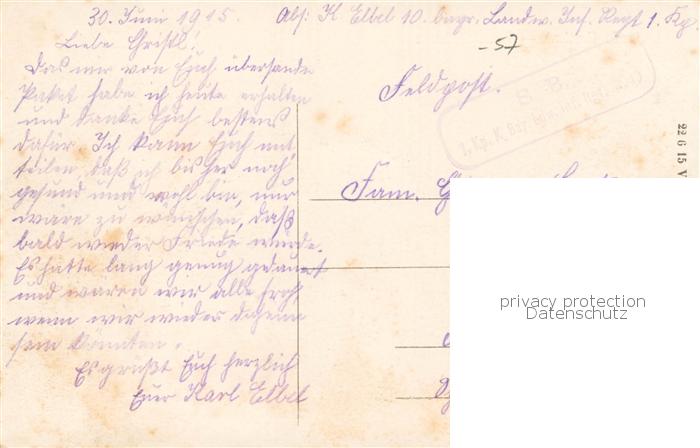 30. Juni 1915. Abs: K. Elbel 10. bayr. Landw. Inf. Regt 1. Kp.
-57
Liebe Christl!
Das mir von Euch übersande
Paket habe ich heute erhalten
und danke Euch bestens
dafür. Ich kann Euch mit
teilen, daß ich bis her noch
gesund und wohl bin, nur
wäre zu wünschen, daß
bald wieder Friede wurde.
Es hatte lang genug gedauert
und waren wir alle froh,
wenn wir wieder daheim
sein konnten.
Es grüßt Euch herzlich
Euer Karl Elbel
Feldpost.
S. B.
1. Kp. K. Bay.
Fam.
22 6 15
privacy protection
Datenschutz